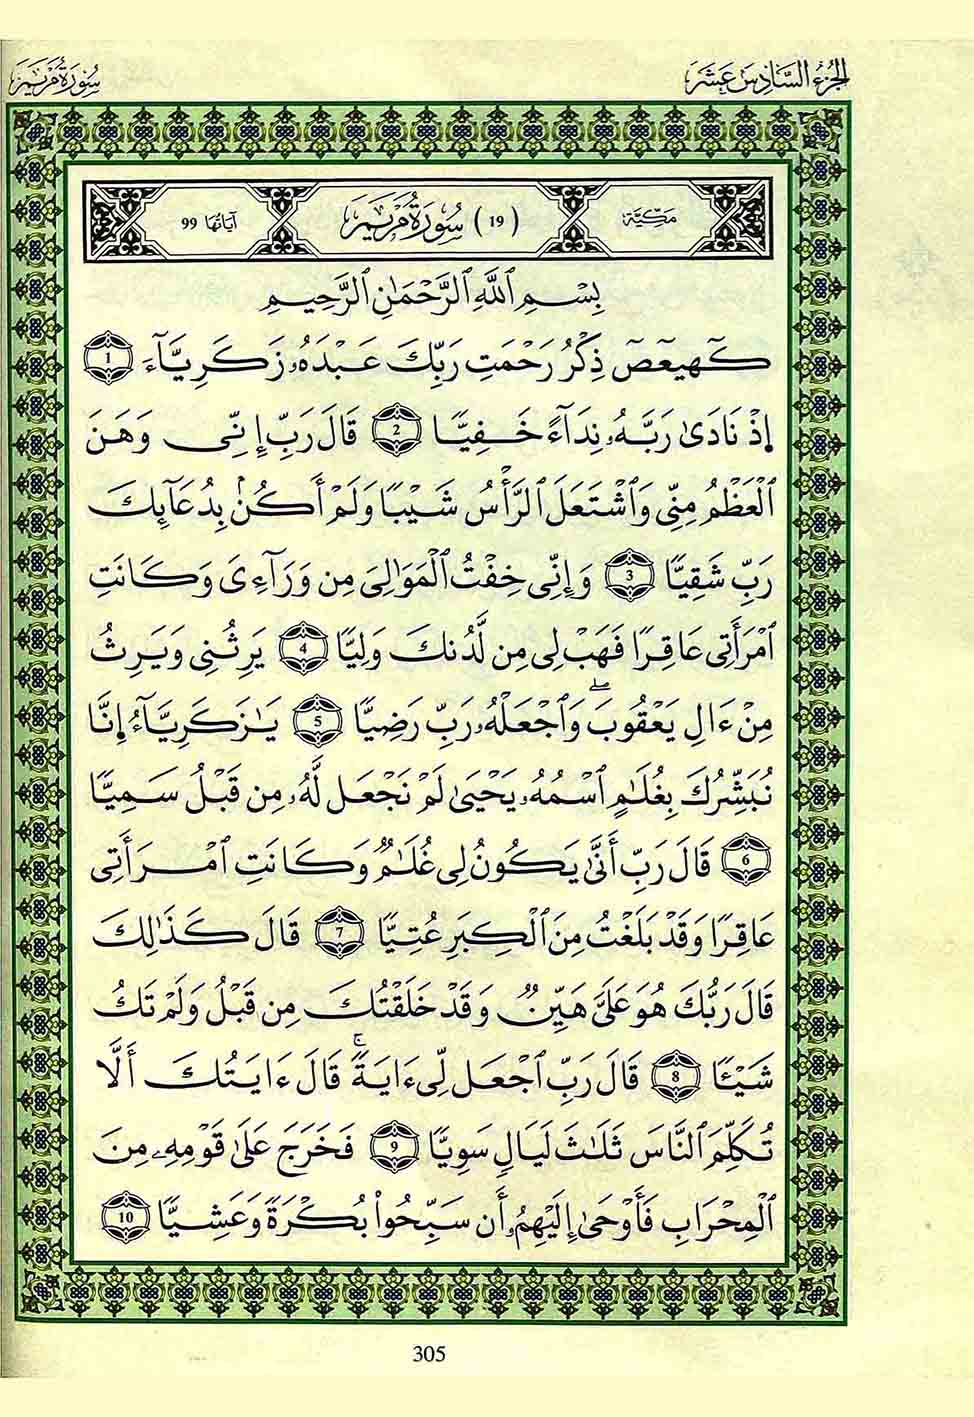 الجزء السادس عشر
سورة مريم
مكية
(19) سورة مريم
آياتها 99
بِسْمِ ٱللَّهِ ٱلرَّحْمَٰنِ ٱلرَّحِيمِ
كٓهيعٓصٓ ذِكْرُ رَحْمَتِ رَبِّكَ عَبْدَهُۥ زَكَرِيَّآءَ 1
إِذْ نَادَىٰ رَبَّهُۥ نِدَآءً خَفِيًّا 2 قَالَ رَبِّ إِنِّى وَهَنَ
ٱلْعَظْمُ مِنِّى وَٱشْتَعَلَ ٱلرَّأْسُ شَيْبًا وَلَمْ أَكُنۢ بِدُعَآئِكَ
رَبِّ شَقِيًّا 3 وَإِنِّى خِفْتُ ٱلْمَوَٰلِىَ مِن وَرَآءِى وَكَانَتِ
ٱمْرَأَتِى عَاقِرًا فَهَبْ لِى مِن لَّدُنكَ وَلِيًّا 4 يَرِثُنِى وَيَرِثُ
مِنْ ءَالِ يَعْقُوبَ ۖ وَٱجْعَلْهُ رَبِّ رَضِيًّا 5 يَٰزَكَرِيَّآءُ إِنَّا
نُبَشِّرُكَ بِغُلَٰمٍ ٱسْمُهُۥ يَحْيَىٰ لَمْ نَجْعَل لَّهُۥ مِن قَبْلُ سَمِيًّا
6 قَالَ رَبِّ أَنَّىٰ يَكُونُ لِى غُلَٰمٌ وَكَانَتِ ٱمْرَأَتِى
عَاقِرًا وَقَدْ بَلَغْتُ مِنَ ٱلْكِبَرِ عُتِيًّا 7 قَالَ كَذَٰلِكَ
قَالَ رَبُّكَ هُوَ عَلَىَّ هَيِّنٌ وَقَدْ خَلَقْتُكَ مِن قَبْلُ وَلَمْ تَكُ
شَيْـًٔا 8 قَالَ رَبِّ ٱجْعَل لِّىٓ ءَايَةً ۚ قَالَ ءَايَتُكَ أَلَّا
تُكَلِّمَ ٱلنَّاسَ ثَلَٰثَ لَيَالٍ سَوِيًّا 9 فَخَرَجَ عَلَىٰ قَوْمِهِۦ مِنَ
ٱلْمِحْرَابِ فَأَوْحَىٰٓ إِلَيْهِمُۥ أَن سَبِّحُوا۟ بُكْرَةً وَعَشِيًّا 10
305